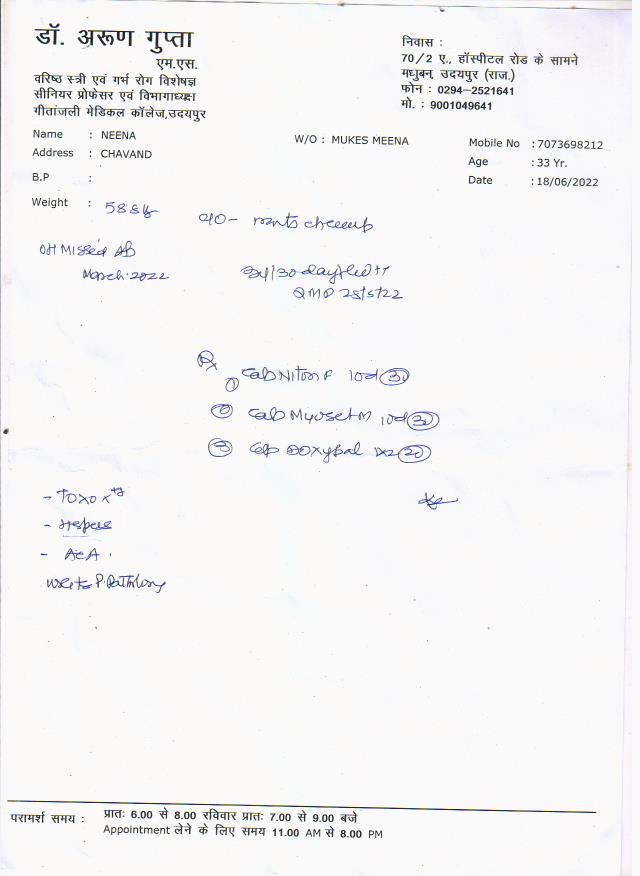 डॉ. अरूण गुप्ता
एम.एस.
वरिष्ठ स्त्री एवं गर्भ रोग विशेषज्ञ
सीनियर प्रोफेसर एवं विभागाध्यक्ष
गीतांजली मेडिकल कॉलेज,उदयपुर
निवास :
70/2 ए., हॉस्पीटल रोड के सामने
मधुबन, उदयपुर (राज.)
फोन : 0294-2521641
मो. : 9001049641
Name : NEENA
W/O : MUKES MEENA
Mobile No :7073698212
Address : CHAVAND
Age :33 Yr.
B.P :
Date :18/06/2022
Weight :
wants
O/H Missed Ab
March. 2022
3-4/30 days
Rx
① Tab 10d 30
② Tab Myoset M 10d 30
③ Cap 1x2
- TOXO
- Herpes
- ACA
परामर्श समय : प्रातः 6.00 से 8.00 रविवार प्रातः 7.00 से 9.00 बजे
Appointment लेने के लिए समय 11.00 AM से 8.00 PM